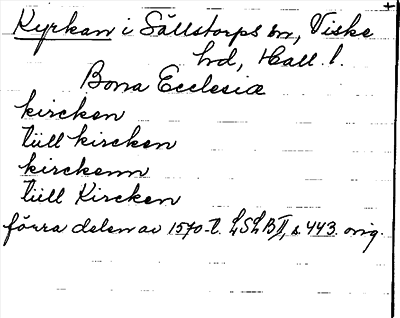 Kyrkan i Sällstorps sn, Viske
hd, Hall. l.
Bona Ecclesia
kircken
tüll kircken
kirckenn
tüll Kircken
förra delen av 1570-t. LSLB II, s. 443. orig.